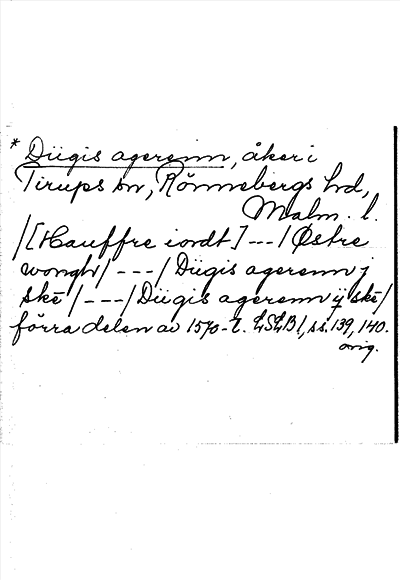 * Diigis agerenn, åker i
Tirups sn, Rönnebergs hd,
Malm. l.
/[Hauffre iordt] --- / Østre
wongh / --- / Diigis agerenn j
skē / --- / Diigis agerenn ij skē /
förra delen av 1570-t. LSLB 1, ss. 139, 140.
orig.